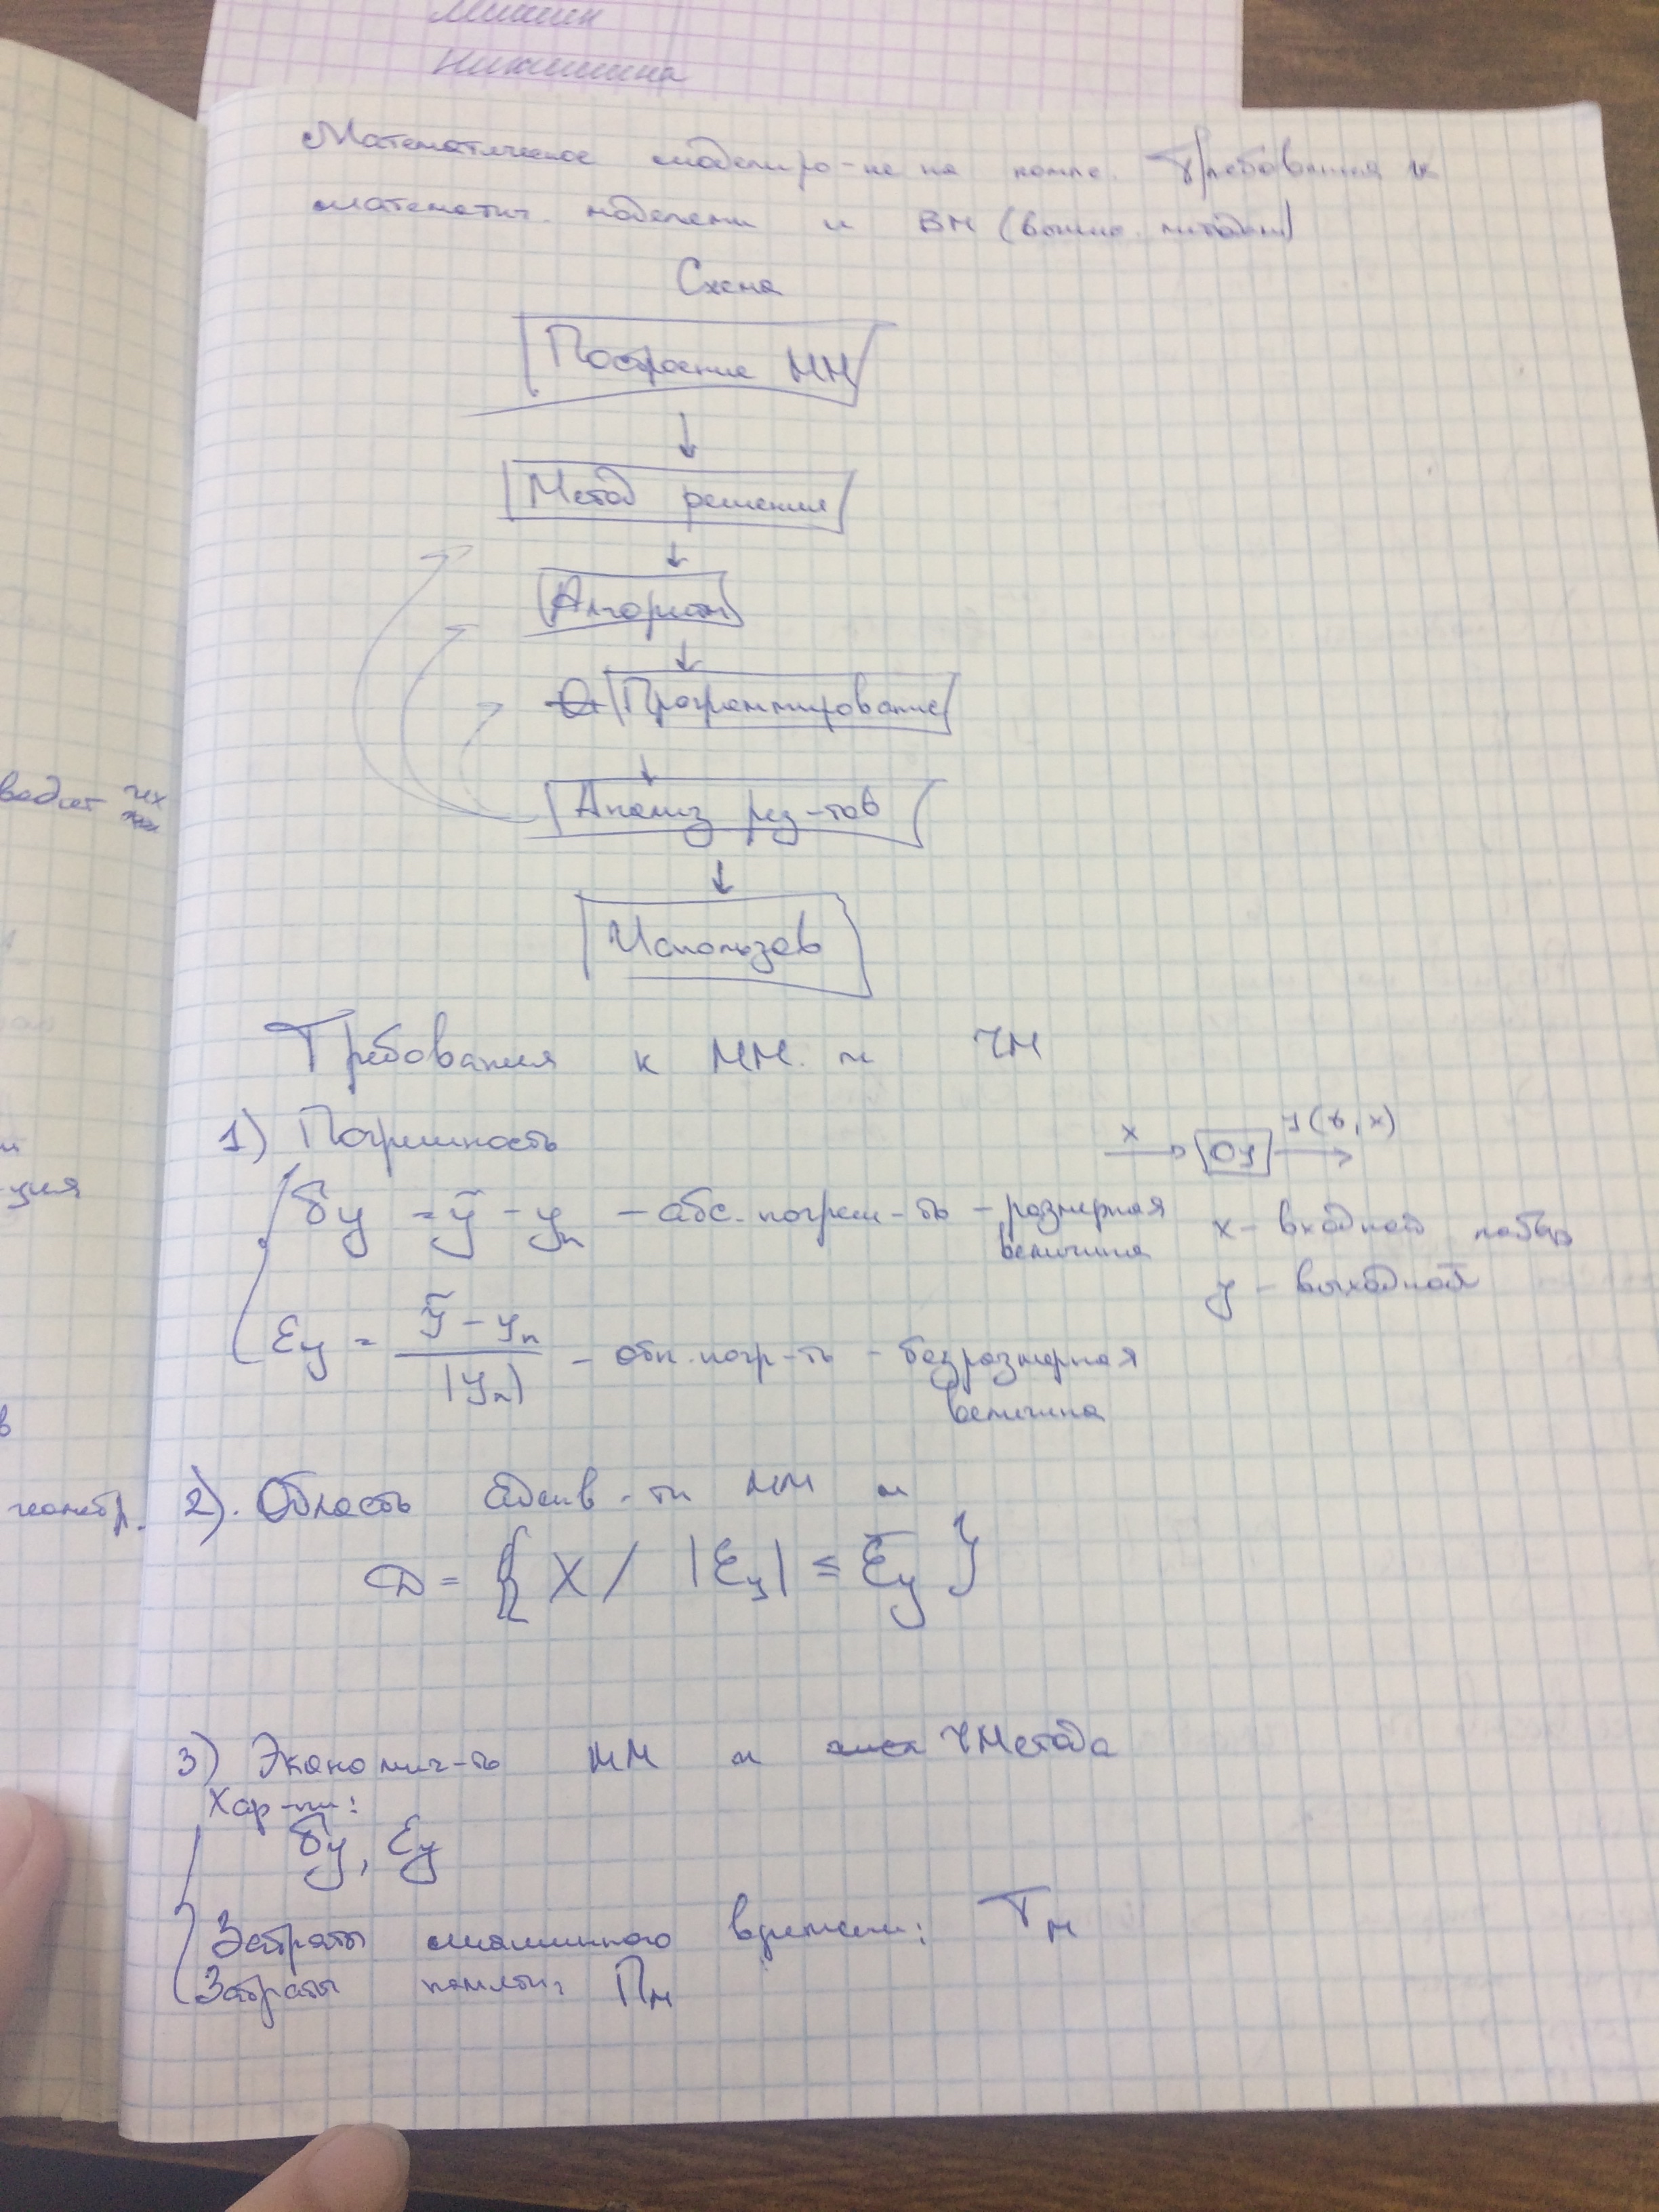 Никишина
Математическое моделиро-ие на комп. Требования к
математич. моделям и ВМ (вычис. методам)
Схема
Построение ММ
↓
Метод решения
↓
Алгоритм
↓
Программирование
↓
Анализ рез-тов
↓
Использов
Требования к ММ и ЧМ
1) Погрешность
x → ОУ → y(t, x)
δy = ỹ - yп - абс. погреш-ть - размерная величина
x - входной набор
y - выходной
εy = (ỹ - yп) / |yп| - отн. погр-ть - безразмерная величина
2). Область адекв-ти ММ и
D = { X / |εy| ≤ ε̄y }
3) Экономич-ть ММ и ЧМетода
Хар-ки:
δy, εy
Затраты машинного времени: Tм
Затраты памяти: Пм
водит
ция
в
геометр.